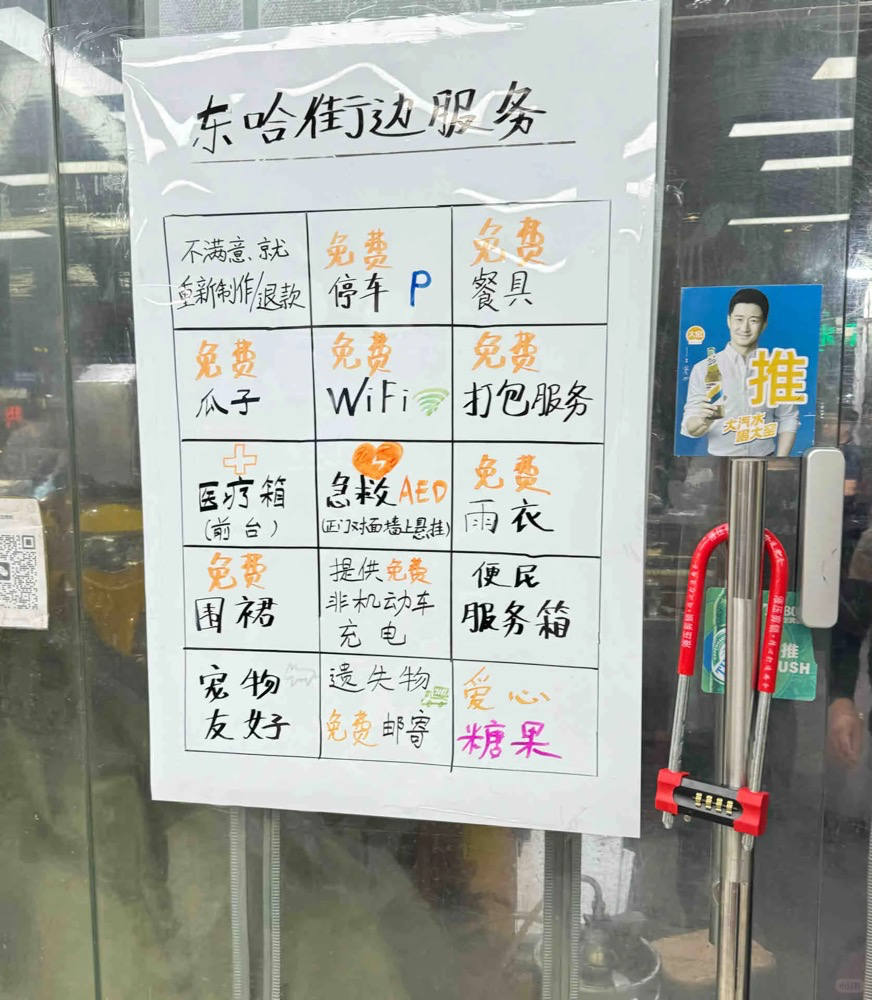 东哈街边服务
不满意、就
重新制作/退款
免费
停车 P
免费
餐具
免费
瓜子
免费
WiFi
免费
打包服务
医疗箱
(前台)
急救AED
(正门对面墙上悬挂)
免费
雨衣
免费
围裙
提供免费
非机动车
充电
便民
服务箱
宠物
友好
遗失物
免费邮寄
爱心
糖果
大窑
推
大汽水
喝大窑
推
USH